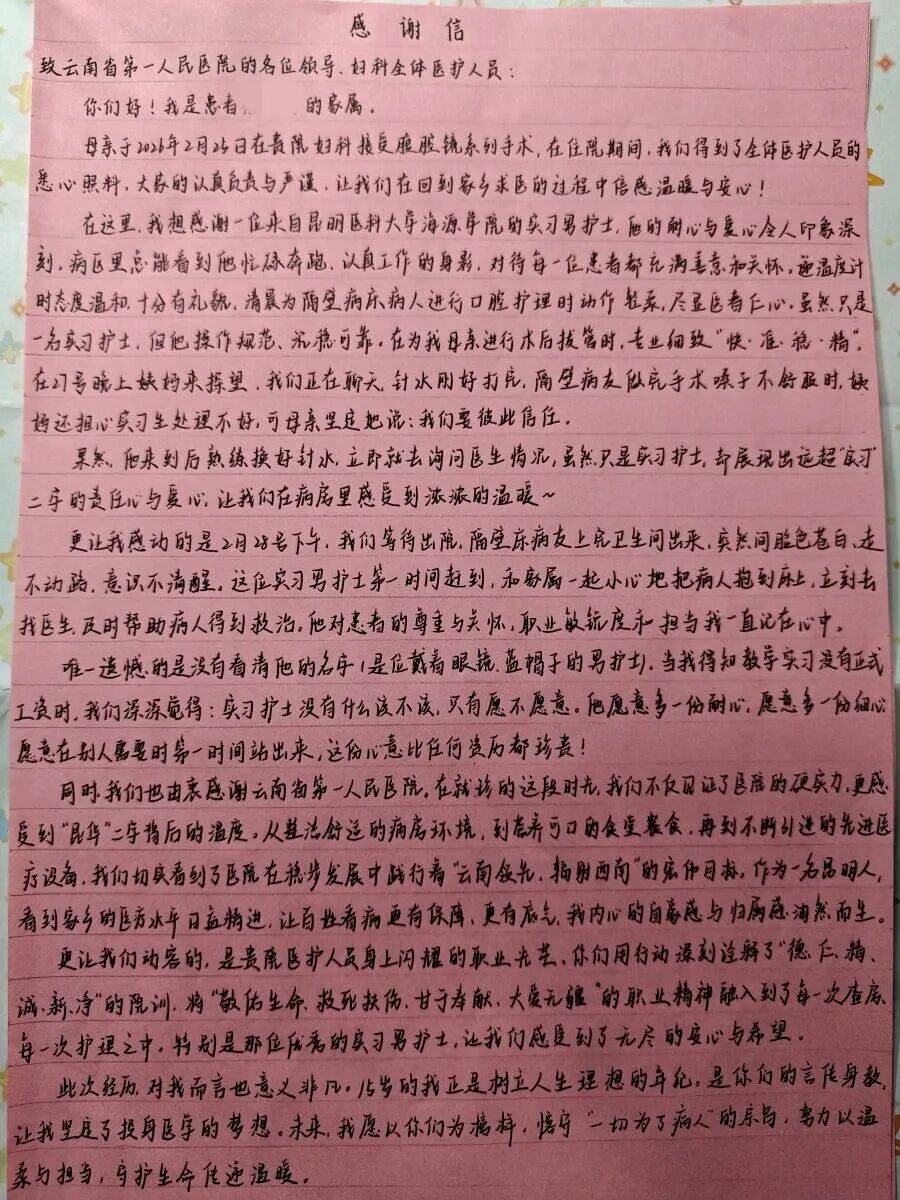 感谢信
致云南省第一人民医院的各位领导、妇科全体医护人员：
你们好！我是患者 的家属。
母亲于2026年2月25日在贵院妇科接受腹腔镜系列手术，在住院期间，我们得到了全体医护人员的
悉心照料，大家的认真负责与严谨，让我们在回到家乡求医的过程中倍感温暖与安心！
在这里，我想感谢一位来自昆明医科大学海源学院的实习男护士，他的耐心与爱心令人印象深
刻。病区里总能看到他忙碌奔跑、认真工作的身影，对待每一位患者都充满善意和关怀，递温度计
时态度温和、十分有礼貌，清晨为隔壁病床病人进行口腔护理时动作轻柔，尽显医者仁心。虽然只是
一名实习护士，但他操作规范、沉稳可靠。在为我母亲进行术后拔管时，专业细致“快·准·稳·精”，
在27号晚上姨妈来探望，我们正在聊天，针水刚好打完，隔壁病友做完手术嗓子不舒服时，姨
妈还担心实习生处理不好，可母亲坚定地说：我们要彼此信任。
果然，他来到后熟练换好针水，立即就去询问医生情况，虽然只是实习护士，却展现出远超“实习”
二字的责任心与爱心，让我们在病房里感受到浓浓的温暖~
更让我感动的是2月28号下午，我们等待出院，隔壁床病友上完卫生间出来，突然间脸色苍白、走
不动路，意识不清醒。这位实习男护士第一时间赶到，和家属一起小心地把病人抱到床上，立刻去
找医生，及时帮助病人得到救治。他对患者的尊重与关怀，职业敏锐度和担当我一直记在心中。
唯一遗憾的是没有看清他的名字（是位戴着眼镜、蓝帽子的男护士），当我得知教学实习没有正式
工资时，我们深深觉得：实习护士没有什么该不该，只有愿不愿意。他愿意多一份耐心，愿意多一份细心，
愿意在别人需要时第一时间站出来，这份心意比任何资历都珍贵！
同时，我们也由衷感谢云南省第一人民医院。在就诊的这段时光，我们不仅见证了医院的硬实力，更感
受到“昆华”二字背后的温度。从整洁舒适的病房环境，到营养可口的食堂餐食，再到不断引进的先进医
疗设备，我们切实看到了医院在稳步发展中践行着“云南领先，辐射西南”的宏伟目标。作为一名昆明人，
看到家乡的医疗水平日益精进，让百姓看病更有保障、更有底气，我内心的自豪感与归属感油然而生。
更让我们动容的，是贵院医护人员身上闪耀的职业光芒。你们用行动深刻诠释了“德、仁、精、
诚、新、净”的院训，将“敬佑生命、救死扶伤、甘于奉献、大爱无疆”的职业精神融入到了每一次查房、
每一次护理之中。特别是那位优秀的实习男护士，让我们感受到了无尽的安心与希望。
此次经历，对我而言也意义非凡。15岁的我正是树立人生理想的年纪，是你们的言传身教，
让我坚定了投身医学的梦想。未来，我愿以你们为榜样，恪守“一切为了病人”的宗旨，努力以温
柔与担当，守护生命传递温暖。